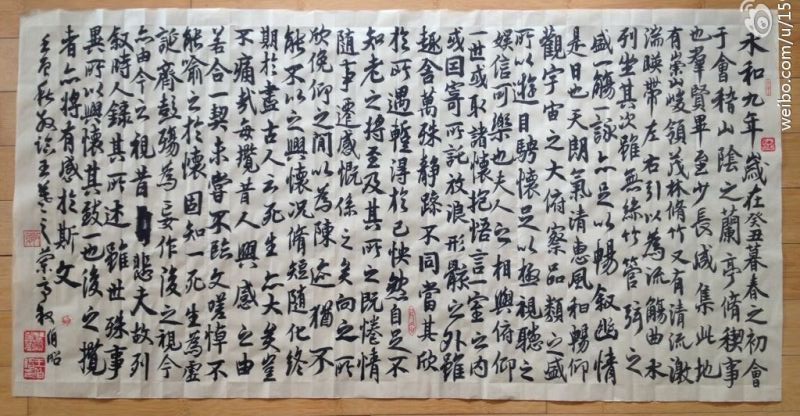 永和九年歲在癸丑暮春之初會
于會稽山陰之蘭亭脩禊事
也羣賢畢至少長咸集此地
有崇山峻領茂林脩竹又有清流激
湍暎帶左右引以為流觴曲水
列坐其次雖無絲竹管弦之
盛一觴一詠亦足以暢敘幽情
是日也天朗氣清惠風和暢仰
觀宇宙之大俯察品類之盛
所以遊目騁懷足以極視聽之
娛信可樂也夫人之相與俯仰
一世或取諸懷抱悟言一室之內
或因寄所託放浪形骸之外雖
趣舍萬殊靜躁不同當其欣
於所遇暫得於己快然自足不
知老之將至及其所之既惓情
隨事遷感慨係之矣向之所
欣俛仰之間以為陳迹猶不
能不以之興懷況脩短隨化終
期於盡古人云死生亦大矣豈
不痛哉每攬昔人興感之由
若合一契未嘗不臨文嗟悼不
能喻之於懷固知一死生為虛
誕齊彭殤為妄作後之視今
亦由今之視昔悲夫故列
敘時人錄其所述雖世殊事
異所以興懷其致一也後之攬
者亦將有感於斯文
秋敬臨王羲之蘭亭敘 伯昭
weibo.com/u/15